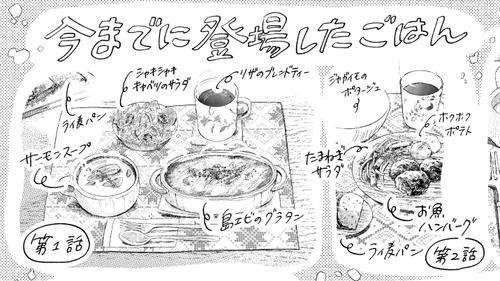 今までに登場したごはん
シャキシャキ
キャベツのサラダ
リザのブレンドティー
ライ麦パン
サーモンスープ
島エビのグラタン
第1話
ジャガイモの
ポタージュ
ホクホク
ポテト
たまねぎ
サラダ
お魚
ハンバーグ
ライ麦パン
第2話